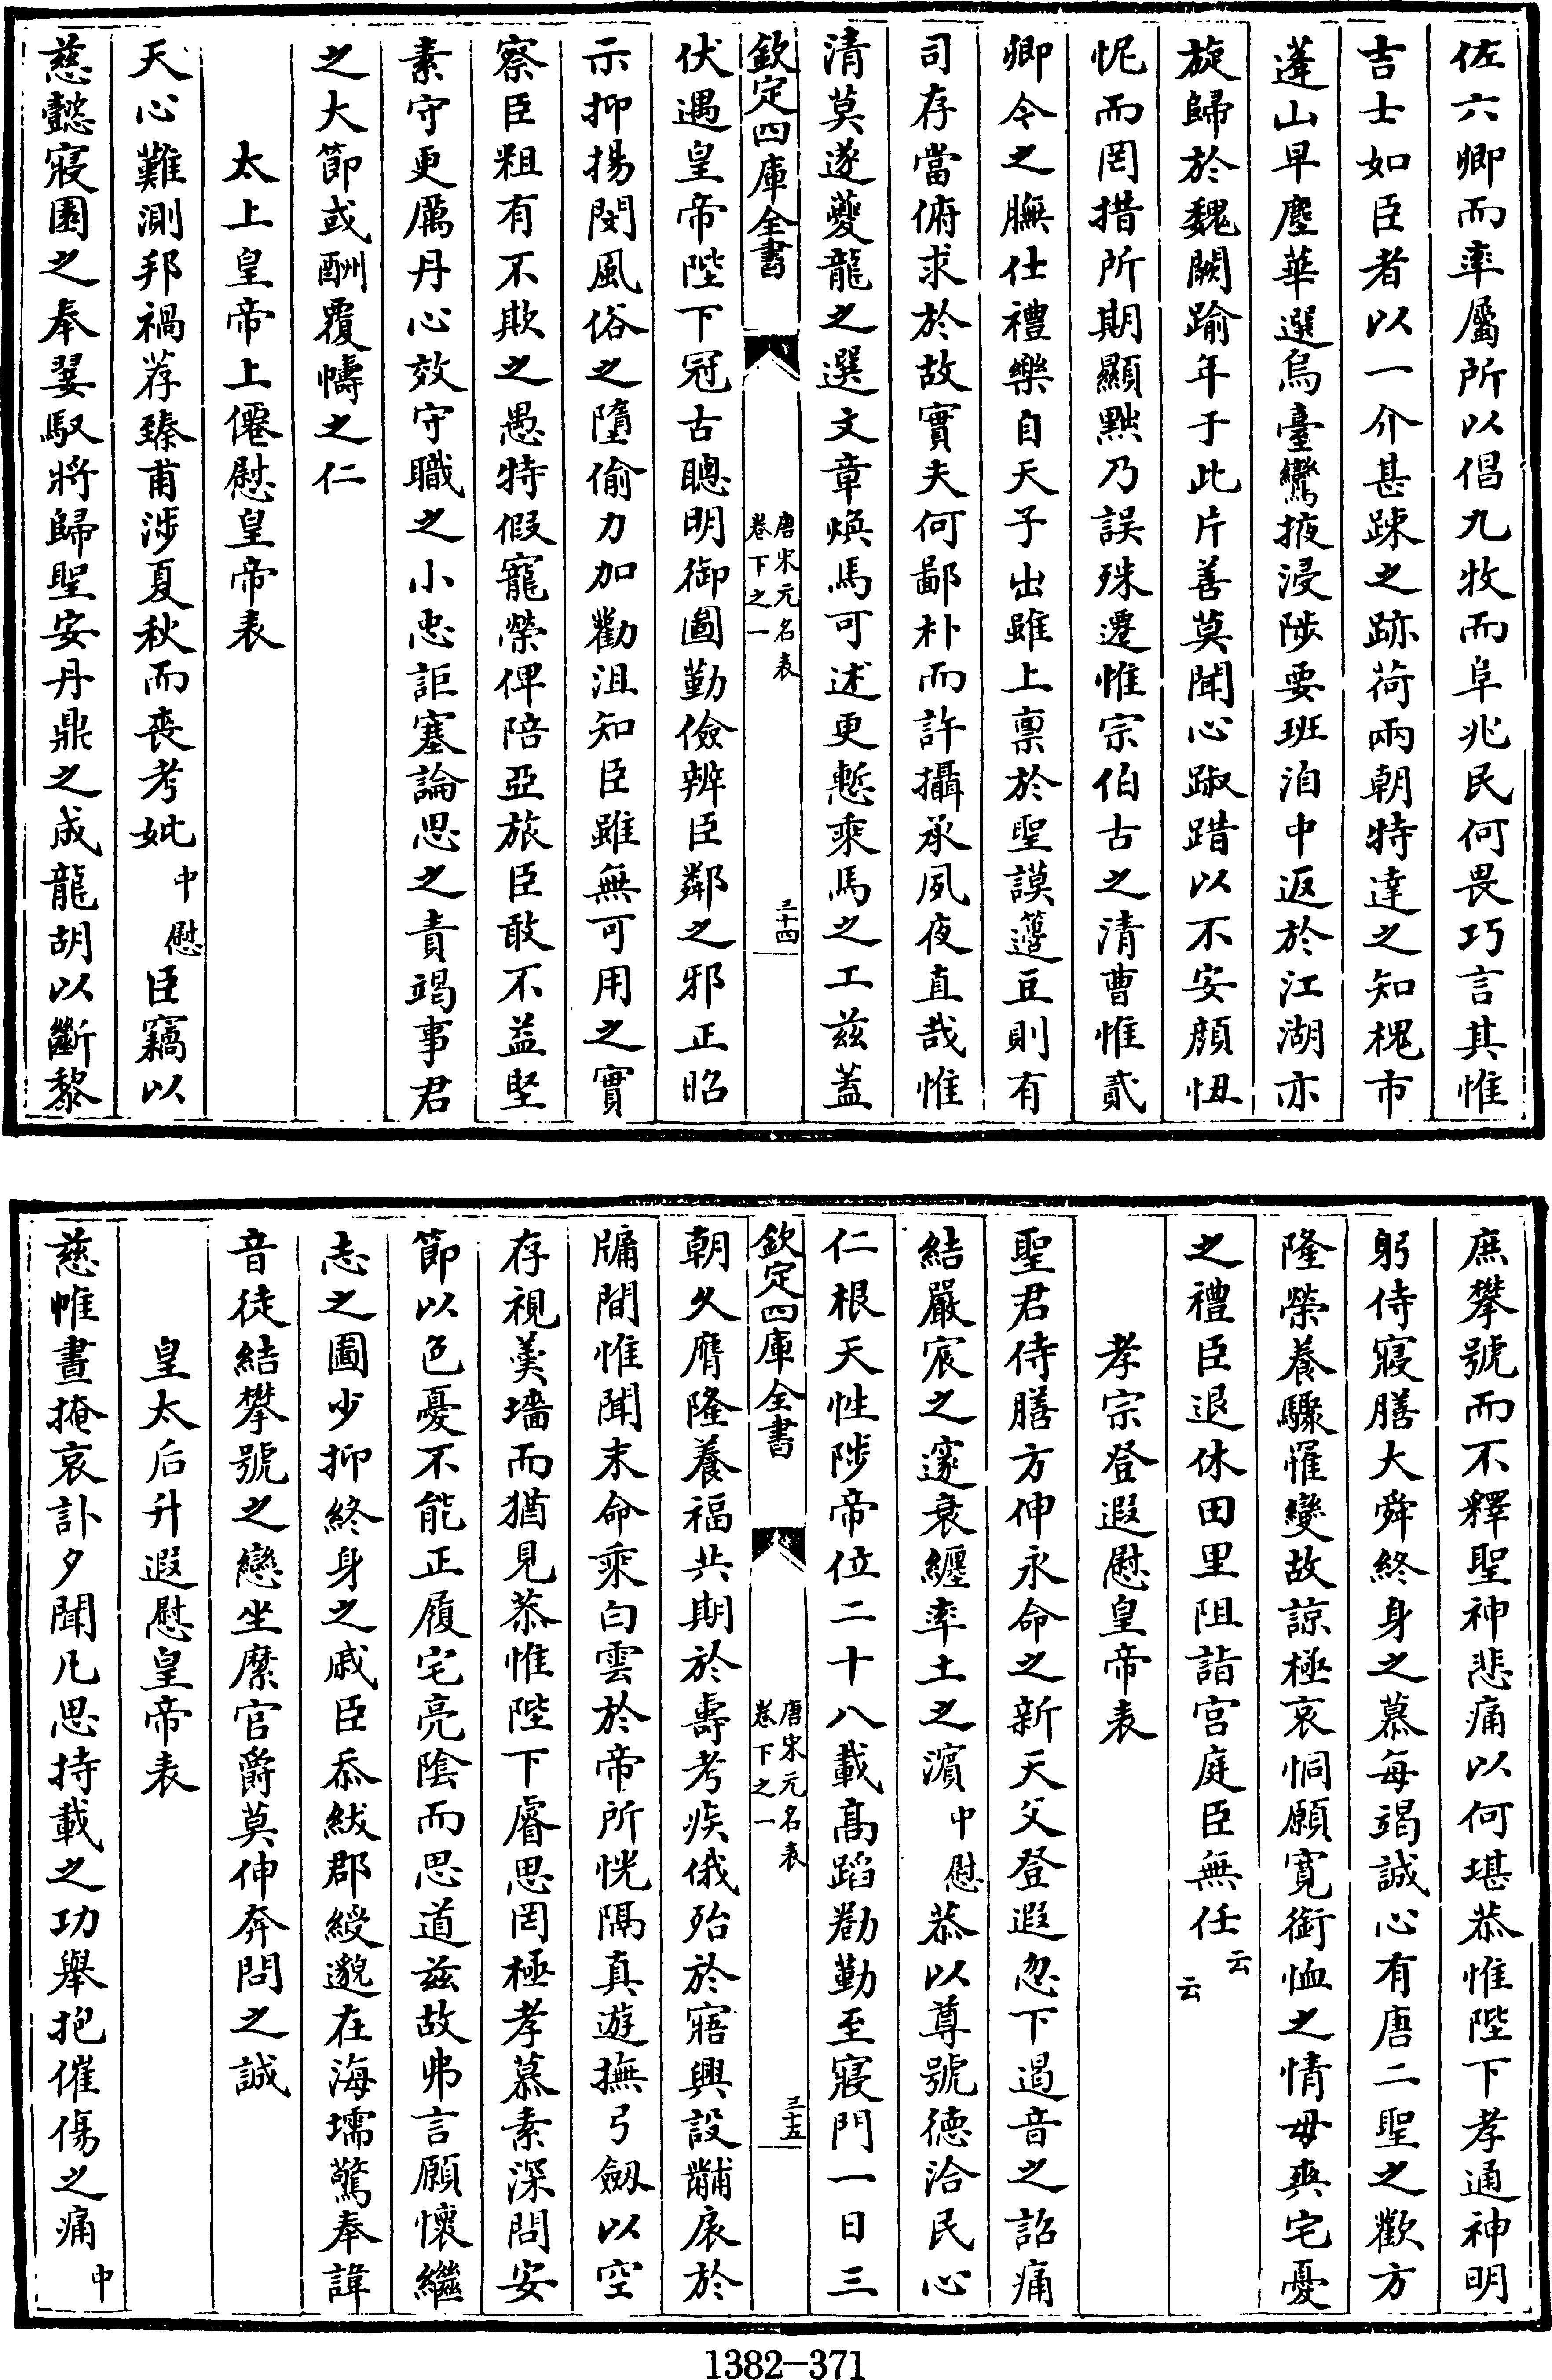 佐六卿而率屬所以倡九牧而阜兆民何畏巧言其惟
吉士如臣者以一介甚踈之跡荷兩朝特達之知槐市
蓬山早塵華選烏臺鸞掖浸陟要班洎中返於江湖亦
旋歸於魏闕踰年于此片善莫聞心踧踖以不安顔忸
怩而罔措所期顯黜乃誤殊遷惟宗伯古之清曹惟貳
卿今之膴仕禮樂自天子出雖上禀於聖謨籩豆則有
司存當俯求於故實夫何鄙朴而許攝承夙夜直哉惟
清莫遂夔龍之選文章煥焉可述更慙乘馬之工兹蓋
欽定四庫全書
唐宋元名表
卷下之一
三十四
伏遇皇帝陛下冠古聰明御圖勤儉辨臣鄰之邪正昭
示抑揚閔風俗之墮偷力加勸沮知臣雖無可用之實
察臣粗有不欺之愚特假寵榮俾陪亞旅臣敢不益堅
素守更厲丹心效守職之小忠詎塞論思之責竭事君
之大節或酬覆幬之仁
太上皇帝上僊慰皇帝表
天心難測邦禍荐臻甫涉夏秋而喪考妣中慰臣竊以
慈懿寢園之奉翣馭將歸聖安丹鼎之成龍胡以斷黎
庶攀號而不釋聖神悲痛以何堪恭惟陛下孝通神明
躬侍寢膳大舜終身之慕每竭誠心有唐二聖之歡方
隆榮養驟罹變故諒極哀恫願寛銜恤之情毋爽宅憂
之禮臣退休田里阻詣宫庭臣無任云云
孝宗登遐慰皇帝表
聖君侍膳方伸永命之新天父登遐忽下遏音之詔痛
結嚴宸之邃哀纏率土之濱中慰恭以尊號德洽民心
仁根天性陟帝位二十八載髙蹈勌勤至寢門一日三
欽定四庫全書
唐宋元名表
卷下之一
三十五
朝久膺隆養福共期於壽考疾俄殆於寤興設黼扆於
牖間惟聞末命乘白雲於帝所恍隔真遊撫弓劔以空
存視羮墻而猶見恭惟陛下睿思罔極孝慕素深問安
節以色憂不能正履宅亮陰而思道兹故弗言願懷繼
志之圖少抑終身之戚臣忝紱郡綬邈在海壖驚奉諱
音徒結攀號之戀坐縻官爵莫伸奔問之誠
皇太后升遐慰皇帝表
慈帷晝掩哀訃夕聞凡思持載之功舉抱催傷之痛中
1382-371